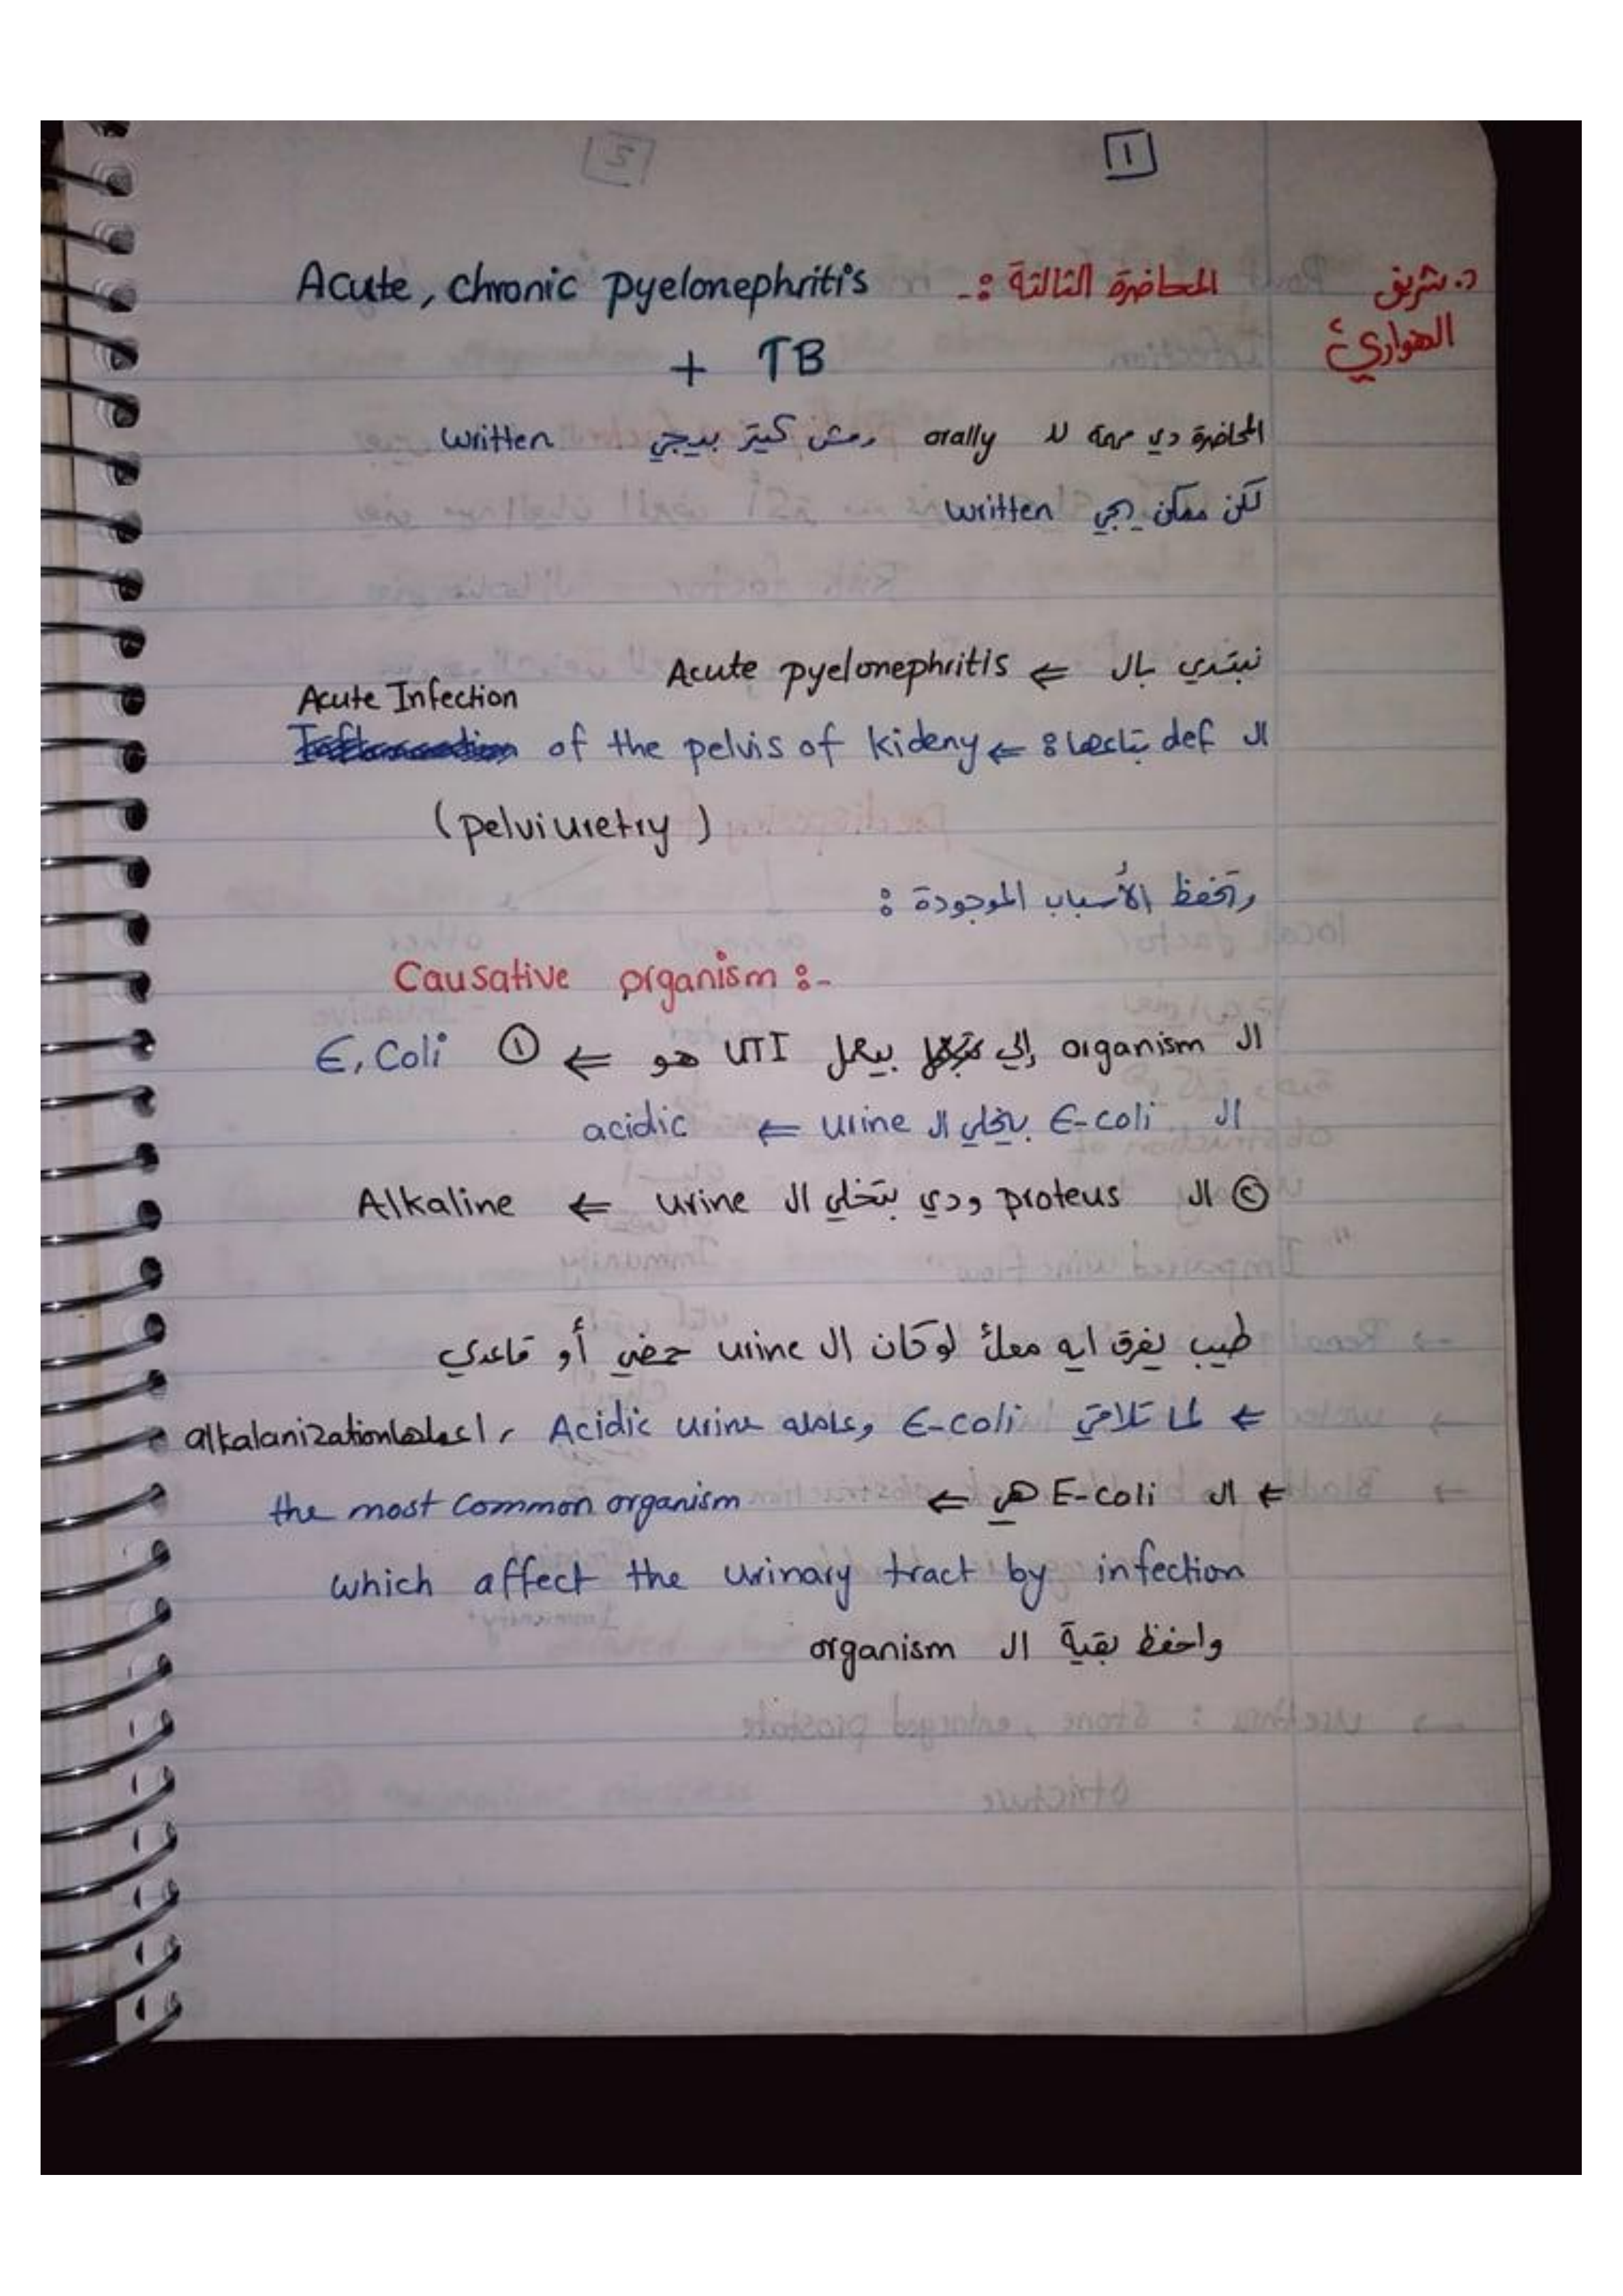 1
د. شريف الهواري
المحاضرة التالتة :- Acute, chronic pyelonephritis
+ TB
المحاضرة دي مهمة لل orally ومش كتير بيجي written
لكن ممكن يجي written
نبتدي بال ⇐ Acute pyelonephritis
ال def بتاعها : ⇐ Acute Infection of the pelvis of kideny
(pelviuretry)
وتحفظ الأسباب الموجودة :
Causative organism :-
ال organism إلي بيعمل UTI هو ⇐ ① E, Coli
ال E-coli بيخلي ال urine ⇐ acidic
② ال proteus ودي بتخلي ال urine ⇐ Alkaline
طيب يفرق ايه معاك لو كان ال urine حمضي أو قاعدي
⇐ لما تلاقي E-coli وعامله Acidic urine , اعملها alkalanization
⇐ ال E-coli هي ⇐ the most common organism
which affect the urinary tract by infection
واحفظ بقية ال organism